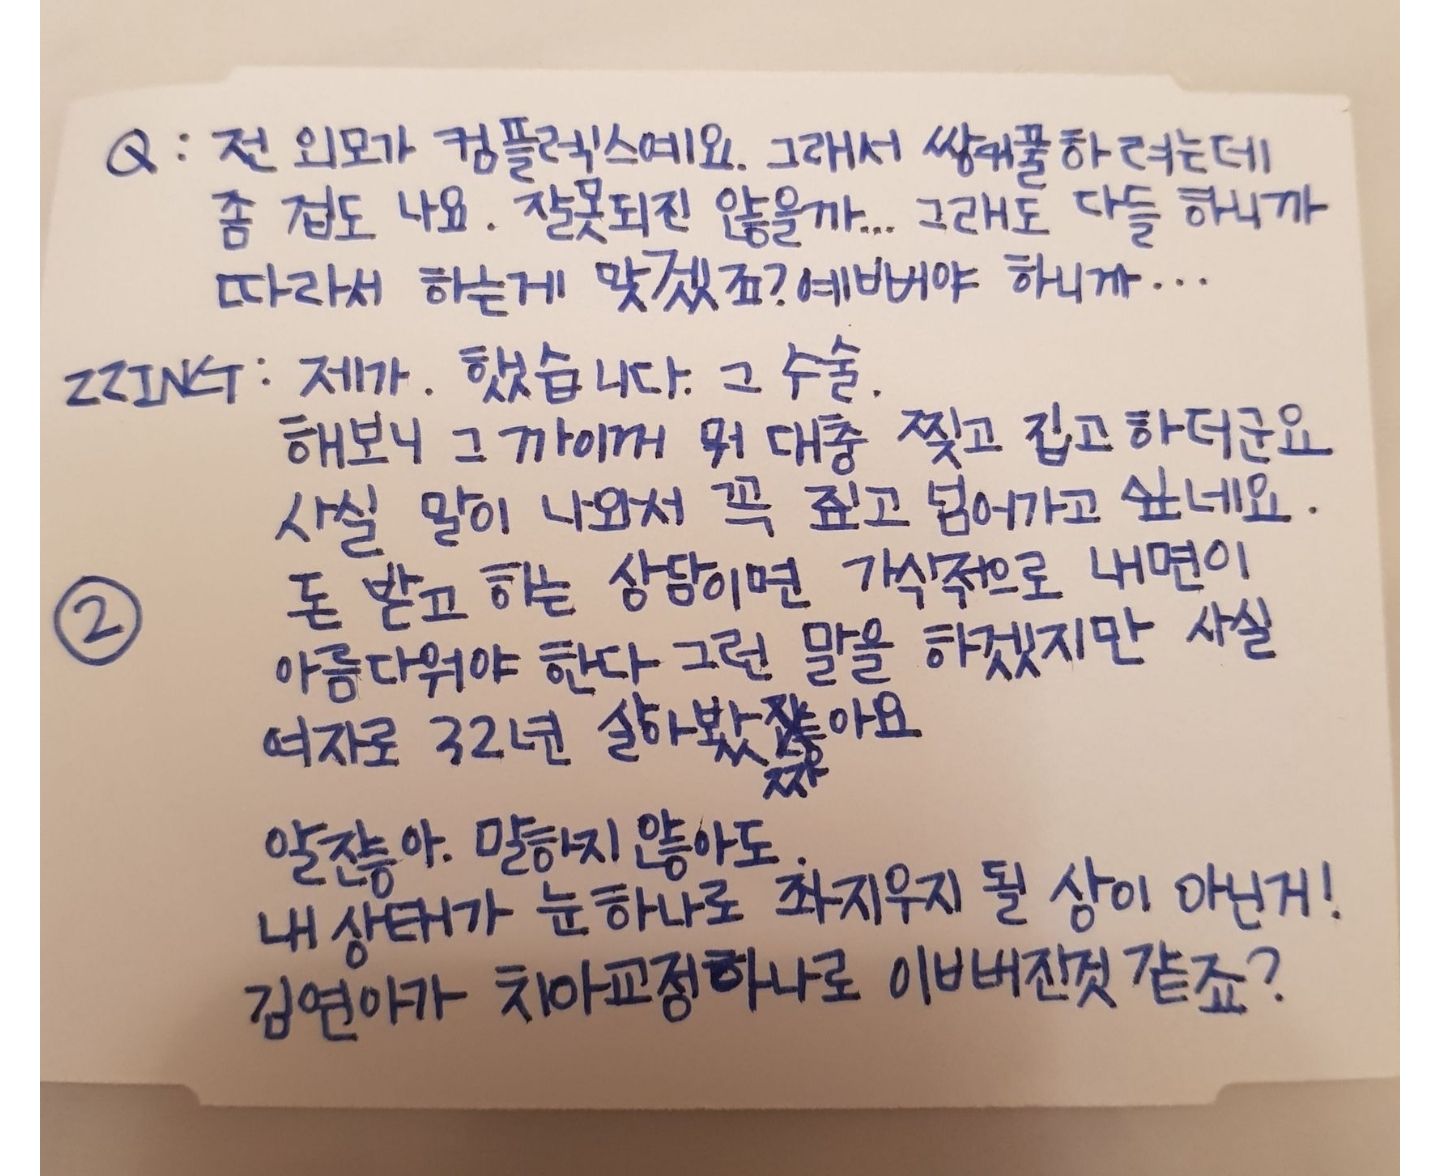 Q : 전 외모가 컴플렉스예요. 그래서 쌍커풀하려는데
좀 겁도 나요. 잘못되진 않을까... 그래도 다들 하니까
따라서 하는게 맞겠죠? 예뻐야 하니까...
ZZING : 제가. 했습니다. 그 수술.
해보니 그까이꺼 뭐 대충 찢고 집고 하더군요
사실 말이 나와서 꼭 짚고 넘어가고 싶네요.
돈 받고 하는 상담이면 가식적으로 내면이
②
아름다워야 한다 그런 말을 하겠지만 사실
여자로 32년 살아봤잖아요
알잖아. 말하지 않아도.
내 상태가 눈하나로 좌지우지 될 상이 아닌거!
김연아가 치아교정하나로 이뻐진것 같죠?